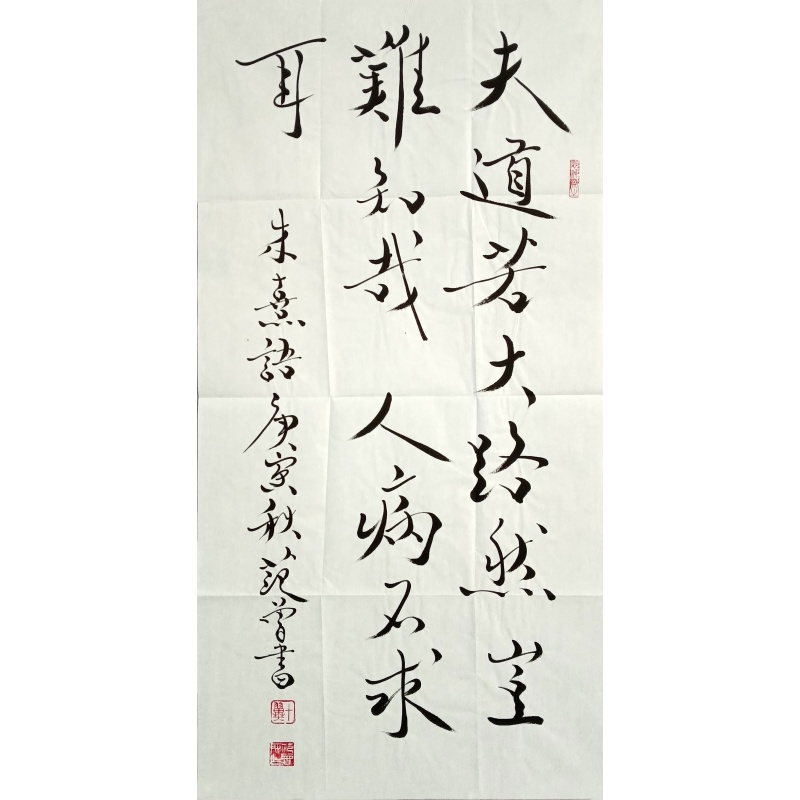 夫道若大路然豈
難知哉人病不求
耳
朱熹語庚寅秋范曾書